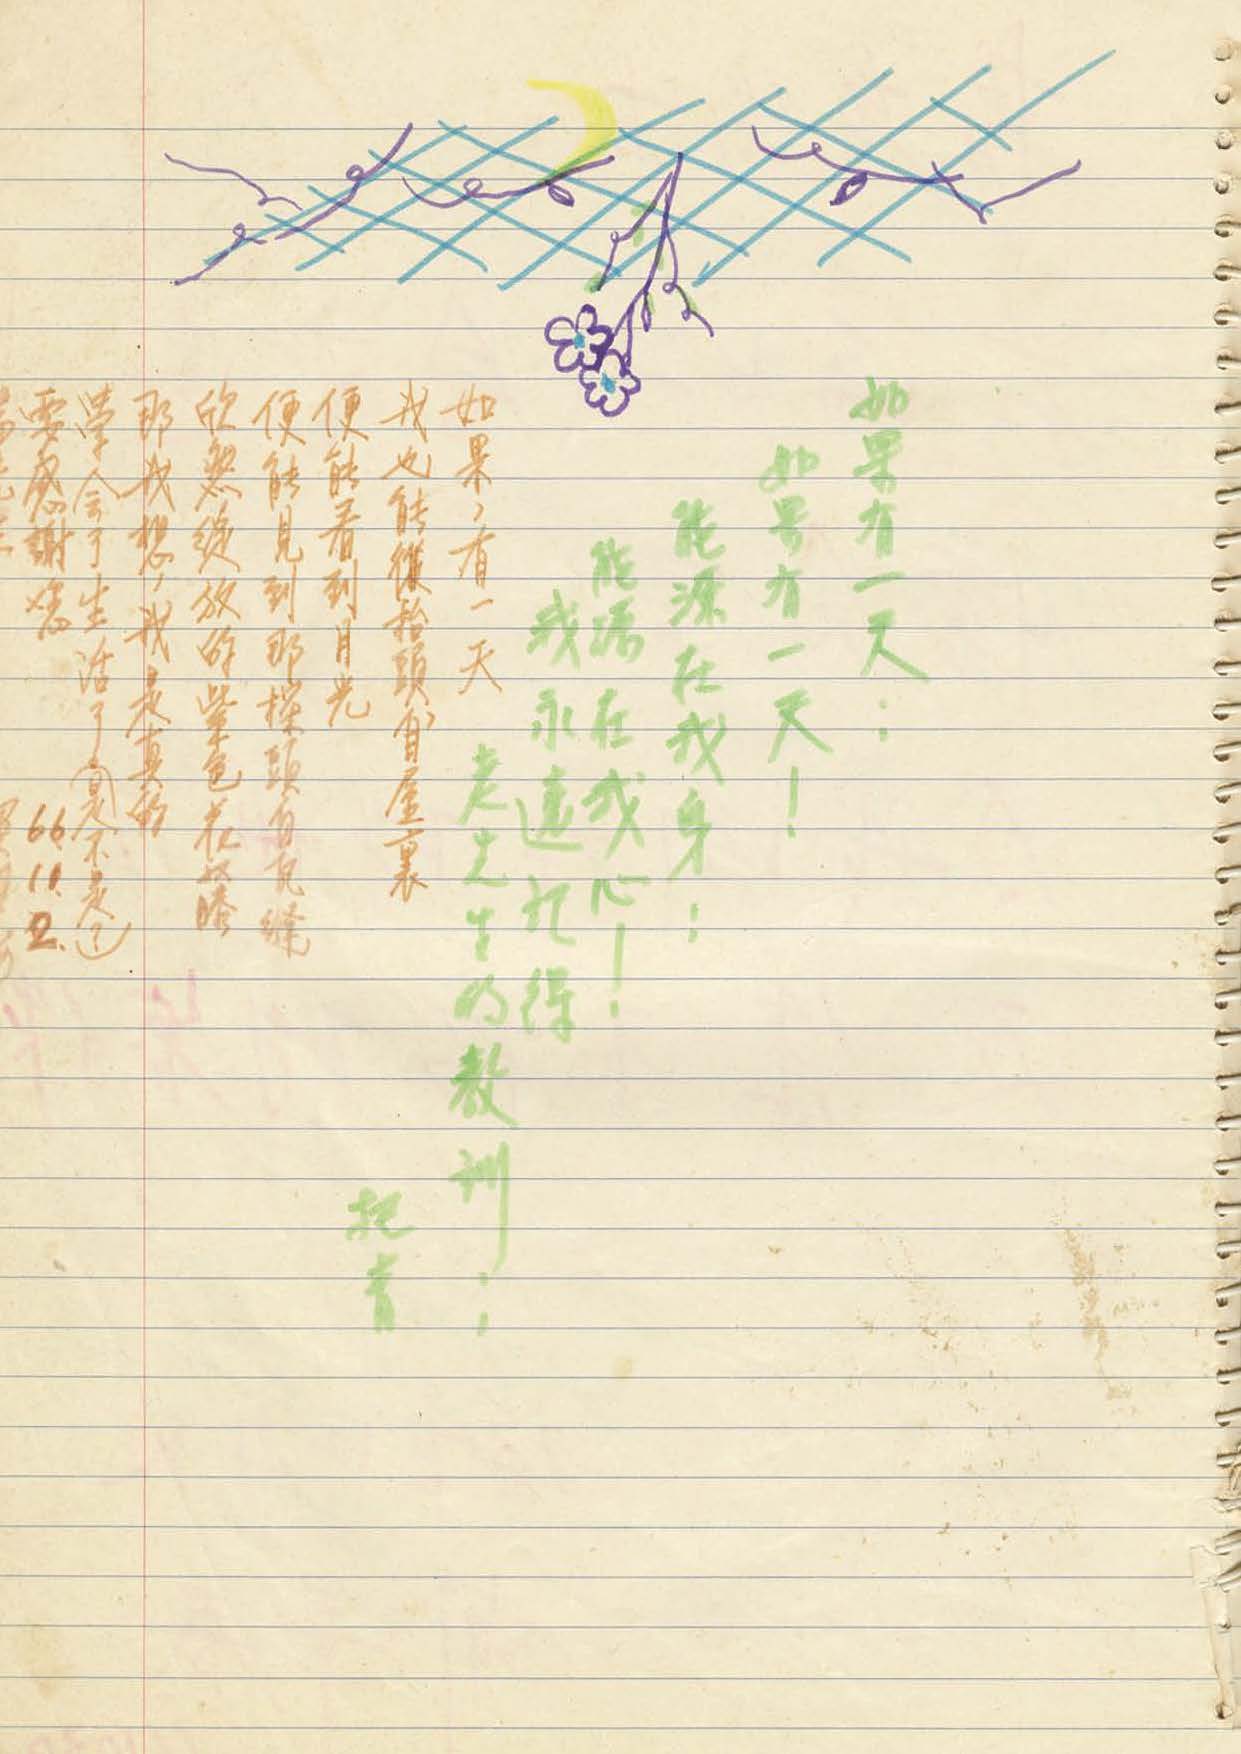 如果有一天：
如果有一天！
能源在我身：
能源在我心！
我永遠記得
老先生的教訓：：
把青
如果，有一天
我也能從抬頭自屋裏
便能看到月光
便能見到那探頭自瓦縫
欣然綻放的紫色花
那我想，我是真的
學會了生活了（是不是）
要感謝您
66.11.2.